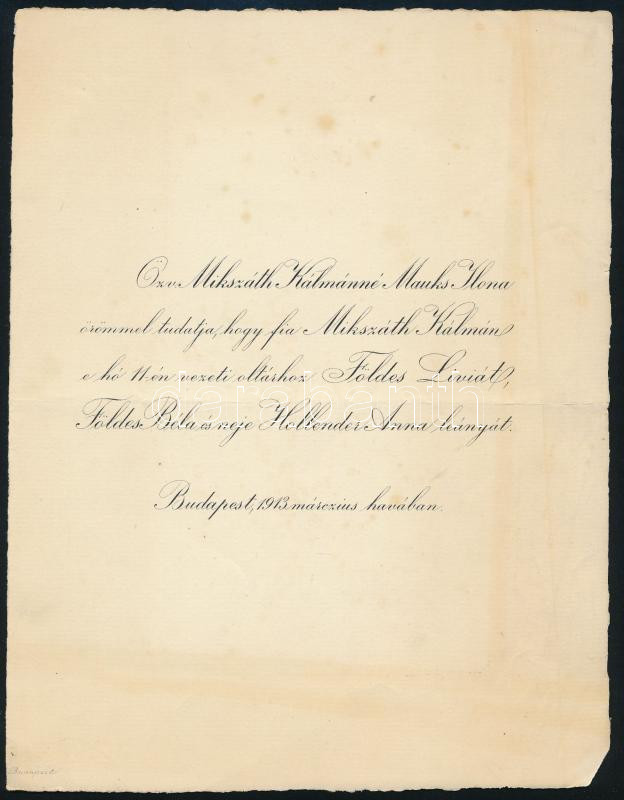 Özv. Mikszáth Kálmánné Mauks Ilona
örömmel tudatja, hogy fia Mikszáth Kálmán
e hó 11-én vezeti oltárhoz Földes Liviát,
Földes Béla és neje Hollender Anna leányát.
Budapest, 1913 márczius havában.
darabanth